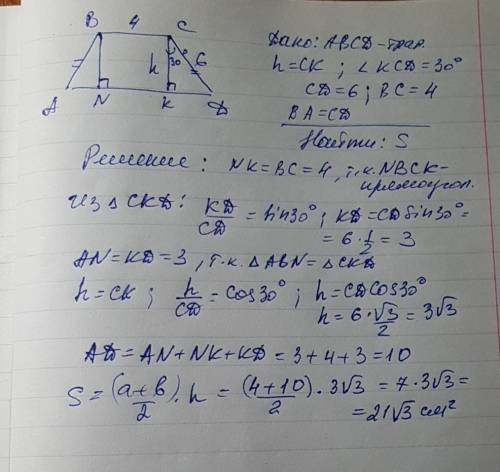 B 4 C
h 30° 6
A N K D
Дано: ABCD-трап.
h=CK ; ∠KCD=30°
CD=6 ; BC=4
BA=CD
Найти: S
Решение: NK=BC=4, т.к. NBCK-
прямоугол.
Из △CKD: KD/CD = sin30° ; KD=CD sin30°=
= 6·1/2 = 3
AN=KD=3, т.к. △ABN=△CKD
h=CK ; h/CD = cos30° ; h=CDcos30°
h=6·√3/2 = 3√3
AD=AN+NK+KD=3+4+3=10
S=(a+b)/2·h = (4+10)/2·3√3 = 7·3√3=
=21√3 см²